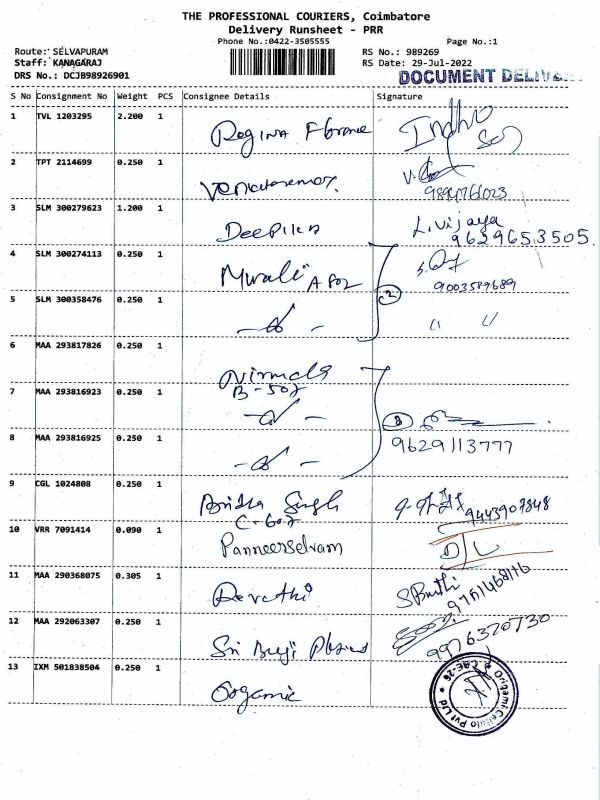 THE PROFESSIONAL COURIERS, Coimbatore
Delivery Runsheet - PRR
Phone No.:0422-3505555 Page No.:1
Route: SELVAPURAM RS No.: 989269
Staff: KANAGARAJ RS Date: 29-Jul-2022
DRS No.: DCJB98926901 DOCUMENT
S No Consignment No Weight PCS Consignee Details Signature
1 TVL 1203295 2.200 1 Regina
2 TPT 2114699 0.250 1
3 SLM 300279623 1.200 1 Deepika L.Vijaya
9629653505.
4 SLM 300274113 0.250 1 A 802
9003589689
5 SLM 300358476 0.250 1 " "
6 MAA 293817826 0.250 1 Nirmala
B-502
7 MAA 293816923 0.250 1
8 MAA 293816925 0.250 1 9629113777
9 CGL 1024808 0.250 1 Singh 9443907848
C-602
10 VRR 7091414 0.090 1 Panneerselvam
11 MAA 290368075 0.305 1 Revathi
12 MAA 292063307 0.250 1 Sri 9976320730
13 IXM 501838504 0.250 1